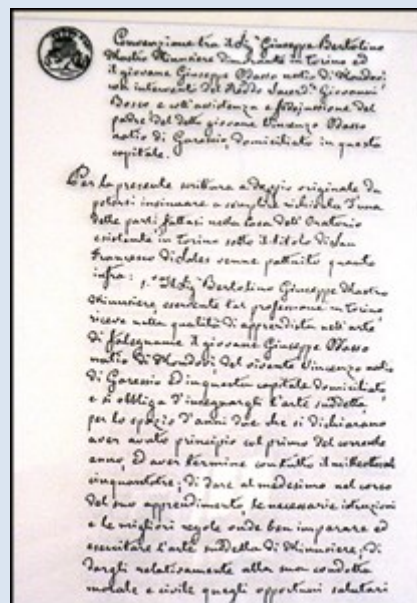 Convenzione tra il Sig.r Giuseppe Bertolino
Mastro Minusiere dimorante in Torino ed
il giovane Giuseppe Odasso natio di Mondovì
con intervento del Rev.do Sacerd.e Giovanni
Bosco e coll'assistenza e fidejussione del
padre del detto giovane Vincenzo Odasso
natio di Garessio, domiciliato in questa
capitale.
Per la presente scrittura a doppio originale da
potersi insinuare a semplice richiesta d'una
delle parti fattasi nella Casa dell'Oratorio
esistente in Torino sotto il titolo di San
Francesco di Sales venne pattuito quanto
infra: 1.° Il Sig.r Bertolino Giuseppe Mastro
Minusiere, esercente tal professione in Torino
riceve nella qualità di apprendista nell'arte
di falegname il giovane Giuseppe Odasso
natio di Mondovì, del vivente Vincenzo natio
di Garessio ed in questa capitale domiciliato
e si obbliga d'insegnargli l'arte suddetta,
per lo spazio d'anni due che si dichiarano
aver avuto principio col primo del corrente
anno, ed aver termine con tutto il mille ottocento
cinquantatre; di dare al medesimo nel corso
del suo apprendimento, le necessarie istruzioni
e le migliori regole onde ben imparare ed
esercitare l'arte suddetta di Minusiere; di
dargli relativamente alla sua condotta
morale e civile quegli opportuni salutari